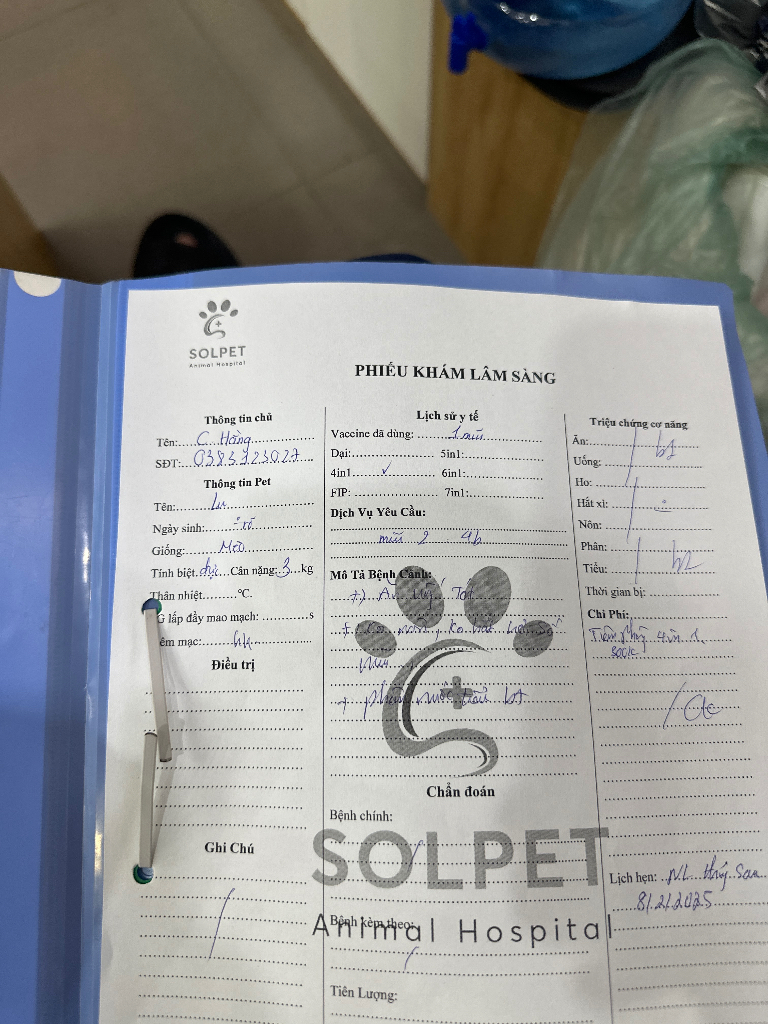 SOLPET
Animal Hospital
PHIẾU KHÁM LÂM SÀNG
Thông tin chủ
Tên: C. Hằng
SĐT: 0383323027
Thông tin Pet
Tên: Lu
Ngày sinh:
Giống: Mèo
Tính biệt: đực Cân nặng: 3 kg
Thân nhiệt °C.
lấp đầy mao mạch: s
êm mạc: hh
Điều trị
Ghi Chú
Lịch sử y tế
Vaccine đã dùng: 1 mũi
Dại: 5in1:
4in1 ✓ 6in1:
FIP: 7in1:
Dịch Vụ Yêu Cầu:
mũi 2 4b
Mô Tả Bệnh Cảnh:
+) Ăn uống Tốt
+ Ko nôn, ko
+ phân nước tiểu bt
Chẩn đoán
Bệnh chính:
SOLPET
Bệnh kèm theo:
Animal Hospital
Tiên Lượng:
Triệu chứng cơ năng
Ăn: bt
Uống:
Ho:
Hắt xì:
Nôn:
Phân:
Tiểu: bt
Thời gian bị:
Chi Phí:
Tiêm phòng 4 in 1
300k
Lịch hẹn: NL
8/2/2025